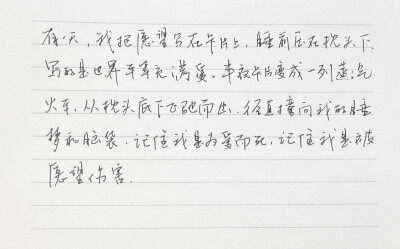 有一天,我把愿望写在卡片上,睡前压在枕头下.
写的是世界 充满爱。半夜卡片变成一列蒸汽
火车,从枕头底下飞驰而出.径直撞向我的睡
梦和脑袋.记住我是为爱而死,记住我是被
愿望伤害.